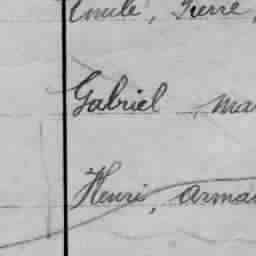 Emile, Pierre,
Gabriel, Ma
Henri, Arma